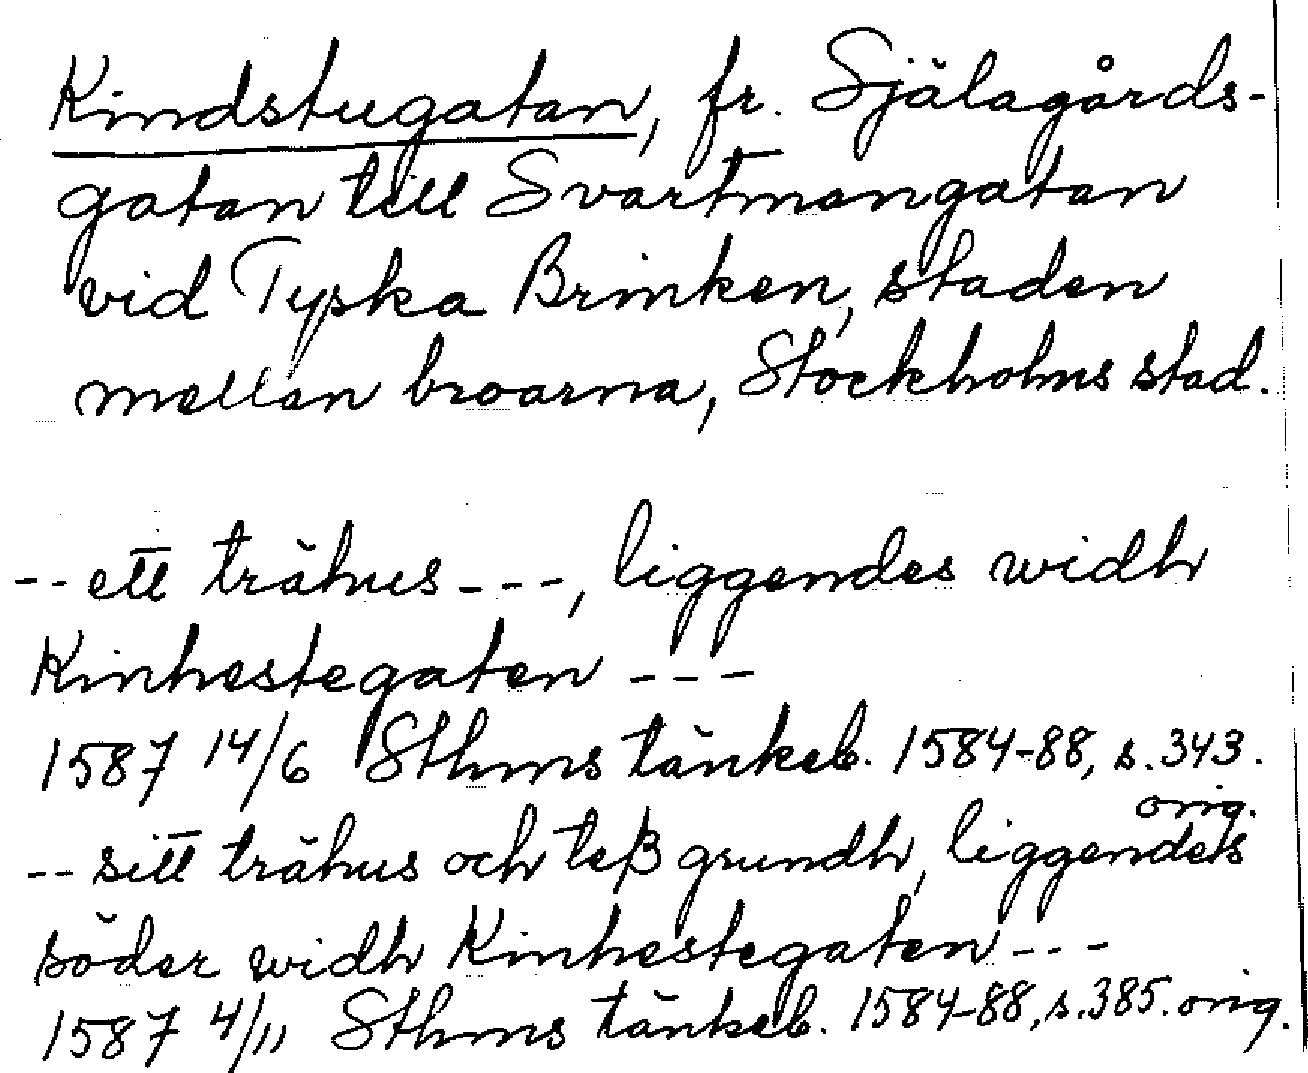 Kindstugatan, fr. Själagårds-
gatan till Svartmangatan
vid Tyska Brinken, staden
mellan broarna, Stockholms stad.
-- ett trähus ---, liggendes widh
Kinhestegaten ---
1587 14/6 Sthms tänkeb. 1584-88, s. 343.
orig.
-- sitt trähus och teß grundh, liggendes
söder widh Kinhestegaten ---
1587 4/11 Sthms tänkeb. 1584-88, s. 385. orig.